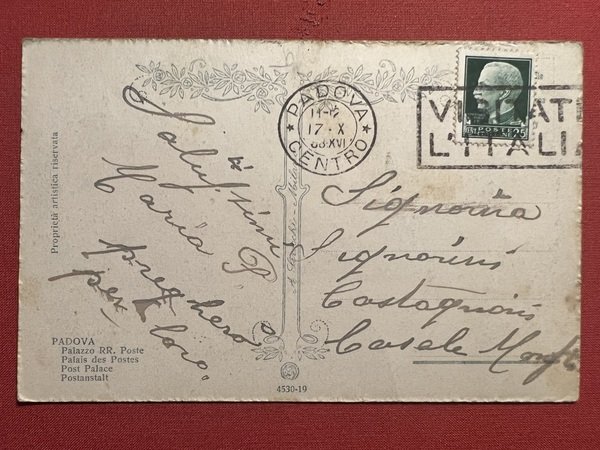 PADOVA
17-X
38 XVI
CENTRO
VISITATE
L'ITALIA
POSTE
25
Proprietà artistica riservata
Salutissimi
Maria P.
pregherò
per loro.
Signorina
Signorini
Castagnoni
Casale Monf.
PADOVA
Palazzo RR. Poste
Palais des Postes
Post Palace
Postanstalt
4530-19